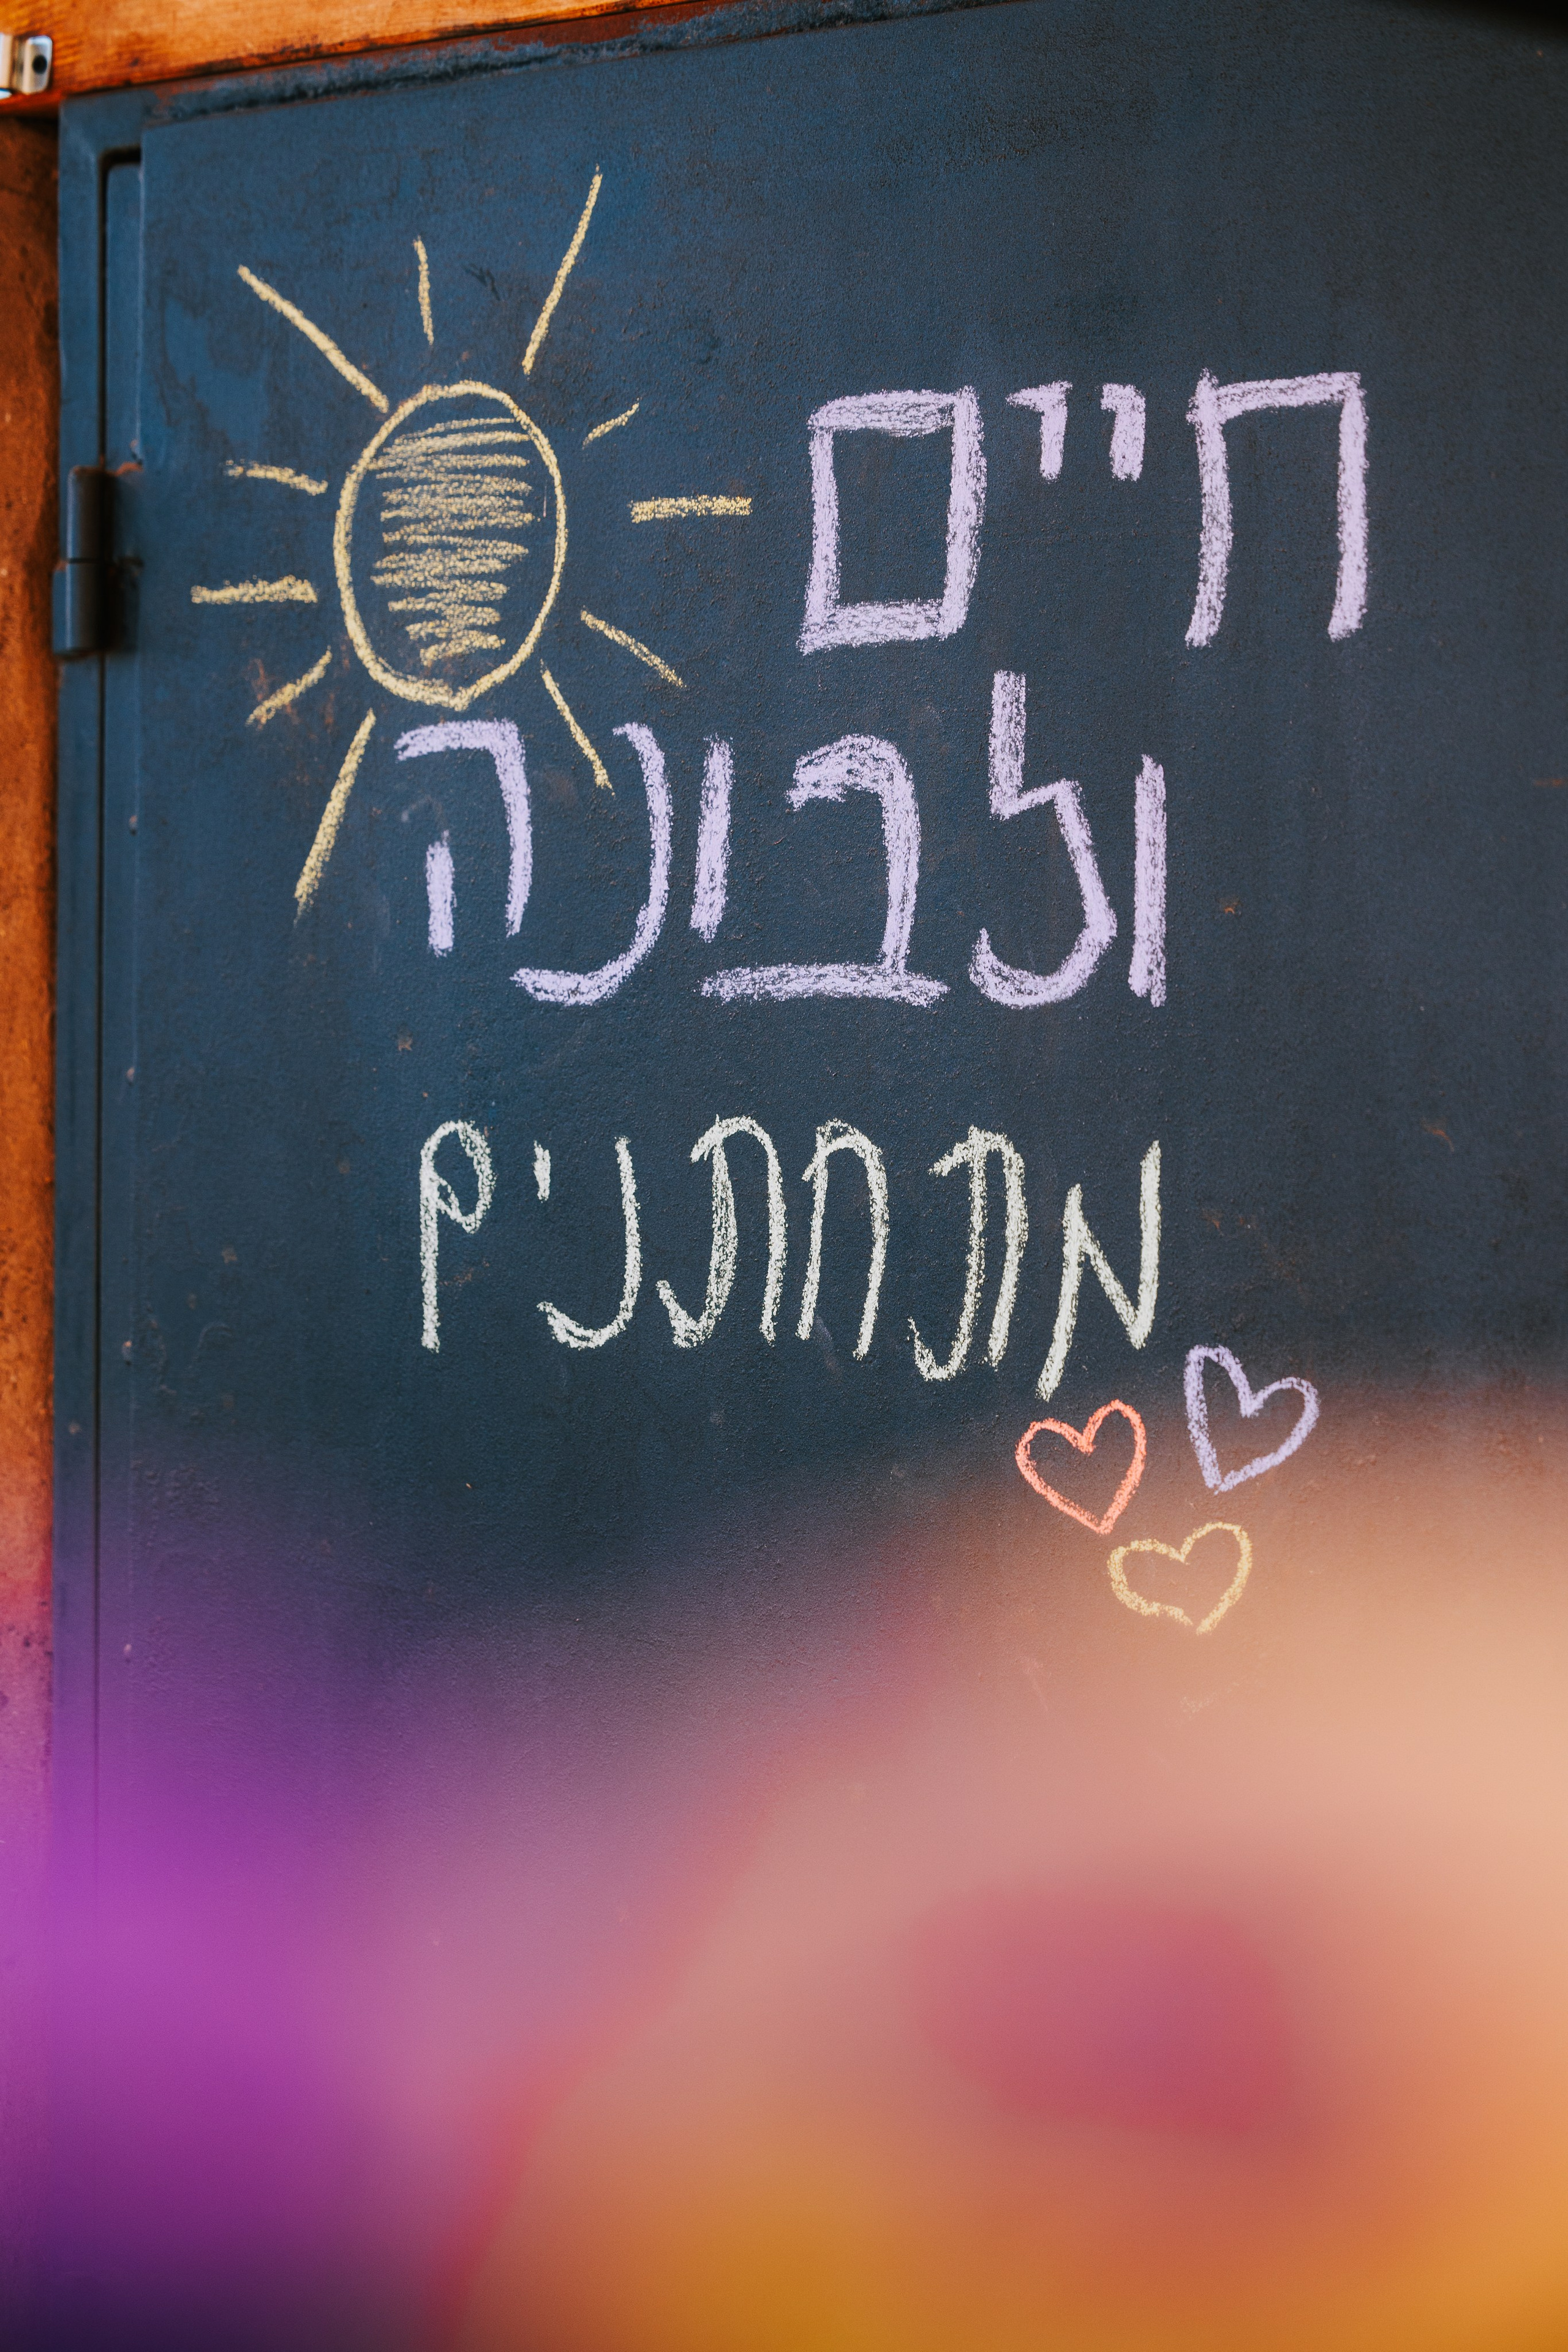 חיים
ולבונה
מתחתנים